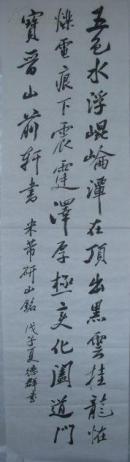 五色水浮崐崘潭在頂出黑雲挂龍怪
爍電痕下震霆澤厚極變化闔道門
寳晉山前軒書 米芾研山銘 戊子夏德群書